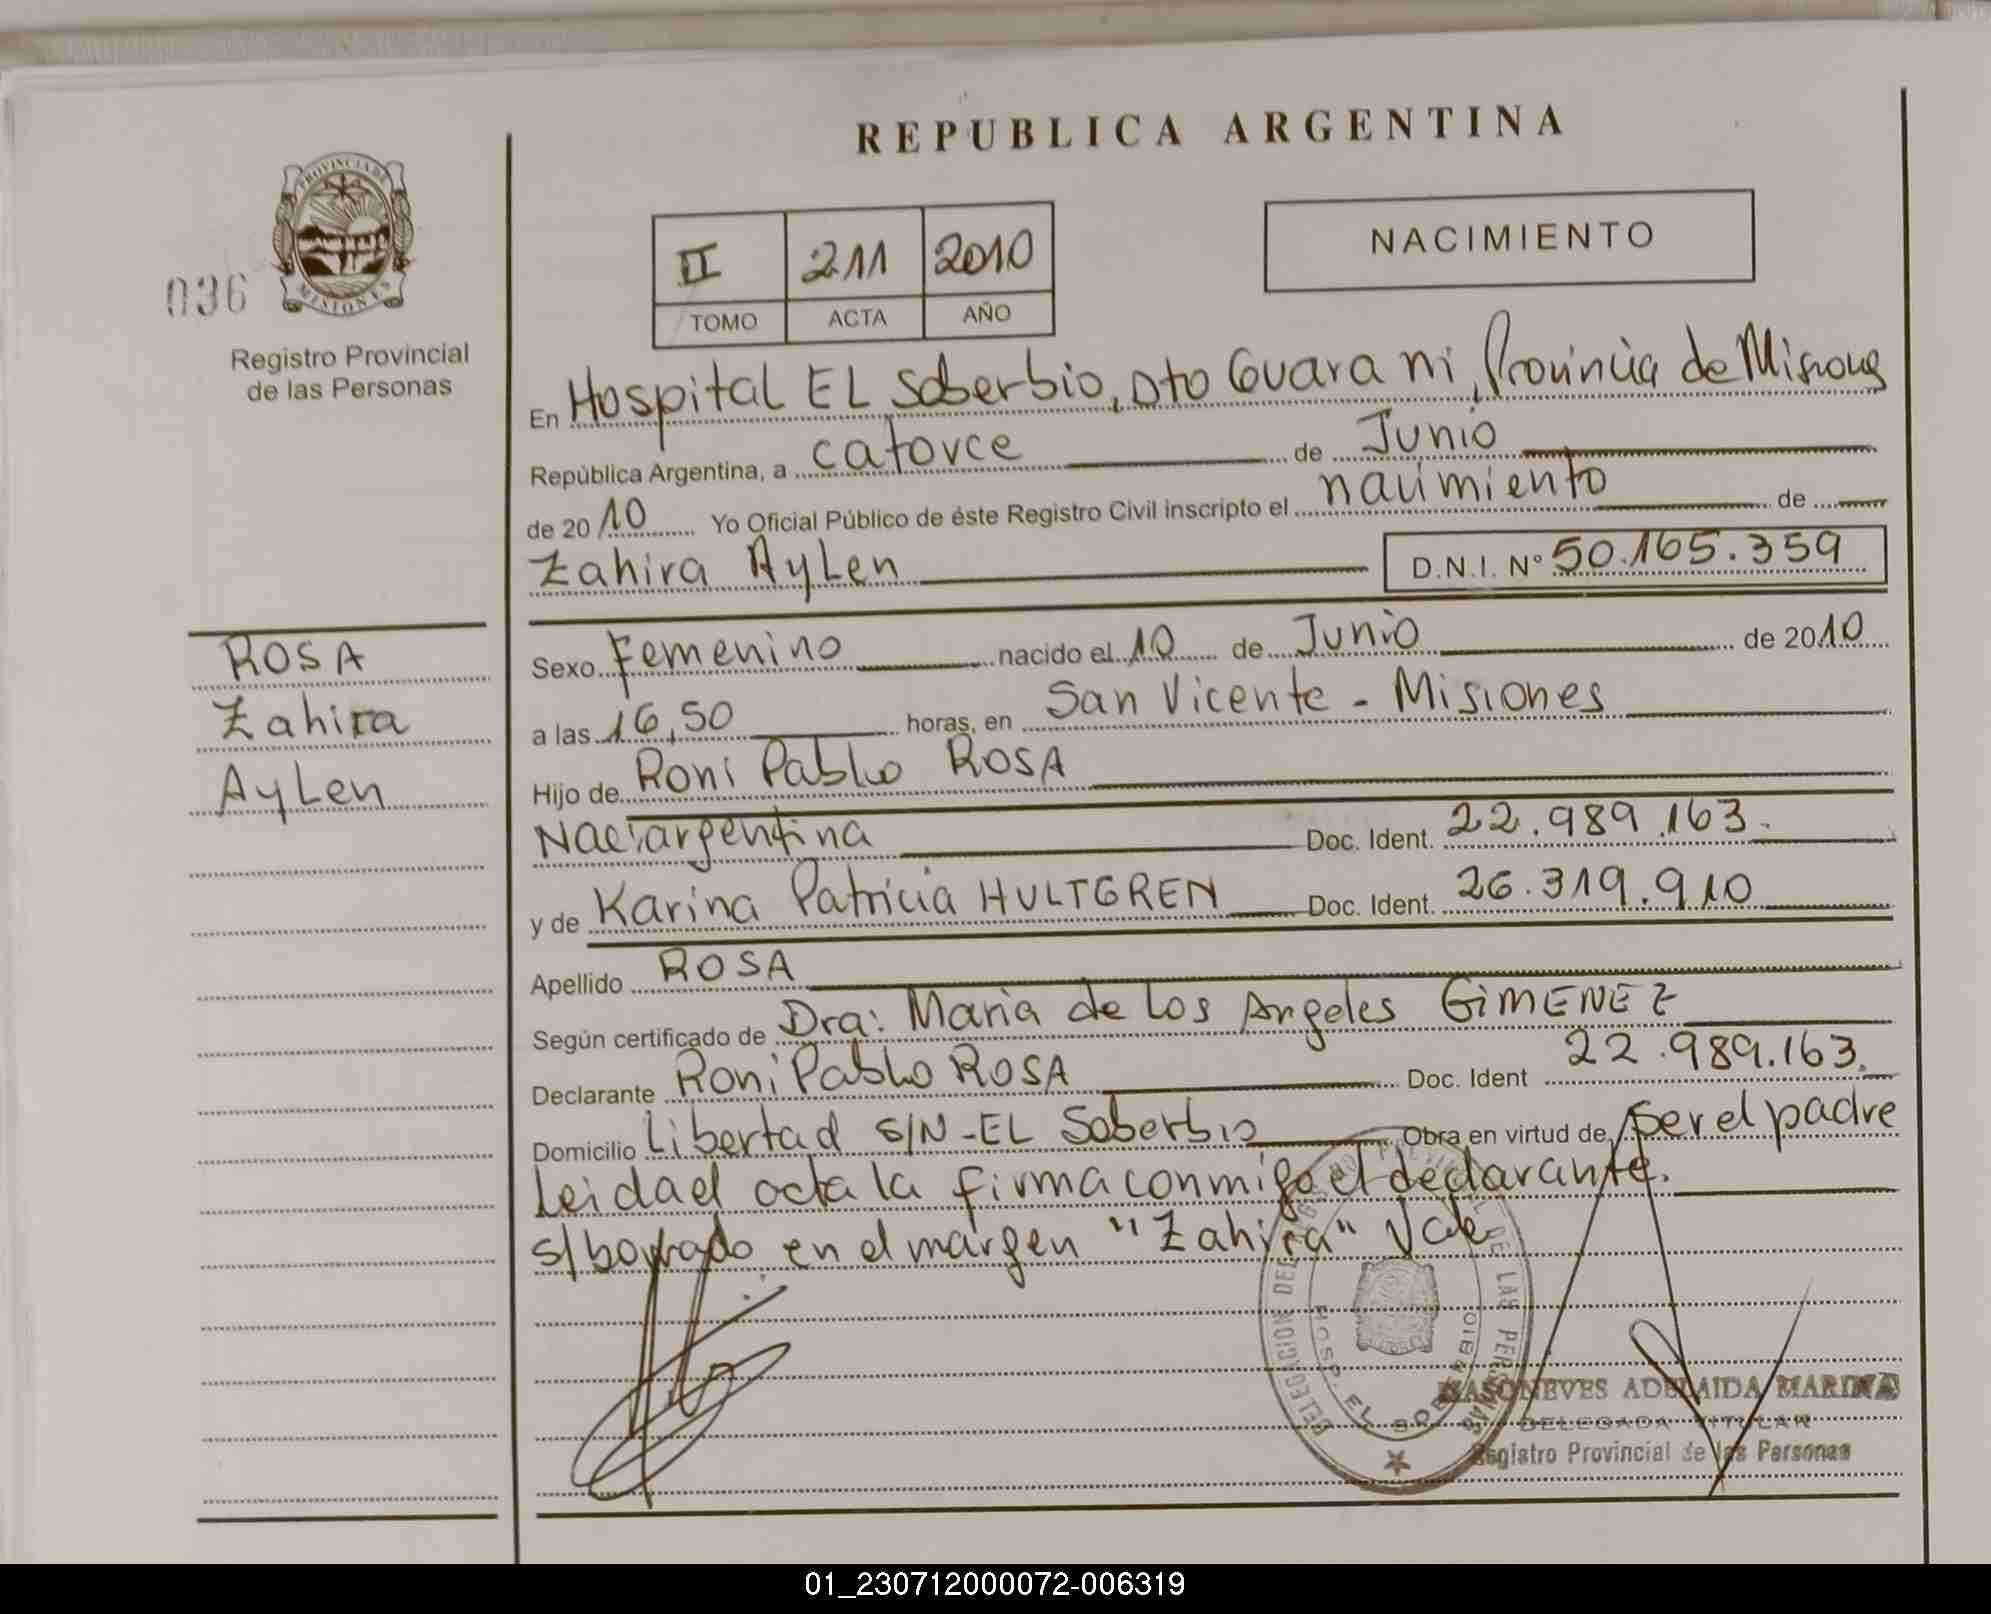 REPUBLICA ARGENTINA
PROVINCIA DE MISIONES
036
Registro Provincial
de las Personas
II 211 2010
TOMO ACTA AÑO
NACIMIENTO
En Hospital EL Soberbio, Dto Guarani, Provincia de Misiones
República Argentina, a catorce de Junio
de 2010 Yo Oficial Público de éste Registro Civil inscripto el nacimiento de
Zahira AyLen D.N.I. N° 50.165.359
ROSA
Zahira
AyLen
Sexo Femenino nacido el 10 de Junio de 2010
a las 16,50 horas, en San Vicente - Misiones
Hijo de Roni Pablo ROSA
Nac: argentina Doc. Ident. 22.989.163.
y de Karina Patricia HULTGREN Doc. Ident. 26.319.910
Apellido ROSA
Según certificado de Dra: Maria de Los Angeles GIMENEZ
Declarante Roni Pablo ROSA Doc. Ident 22.989.163.
Domicilio Libertad S/N-EL Soberbio Obra en virtud de ser el padre
Leida el acta la firma conmigo el declarante.
s/borrado en el margen "Zahira" Vale
DELEGACION DEL REGISTRO PROVINCIAL DE LAS PERSONAS
HOSP. EL SOBERBIO
ADELAIDA MARINA
DELEGADA TITULAR
Registro Provincial de las Personas
01_230712000072-006319